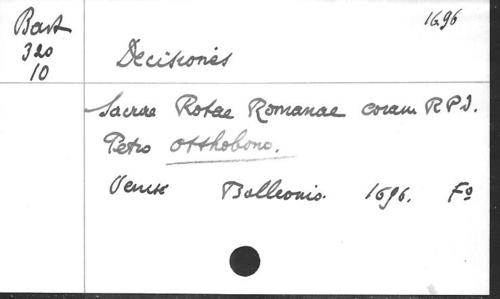 1696
Bart
320
10
Decisiones
Sacrae Rotae Romanae coram R P D.
Petro Otthobono.
Venise Balleonis. 1696. Fº